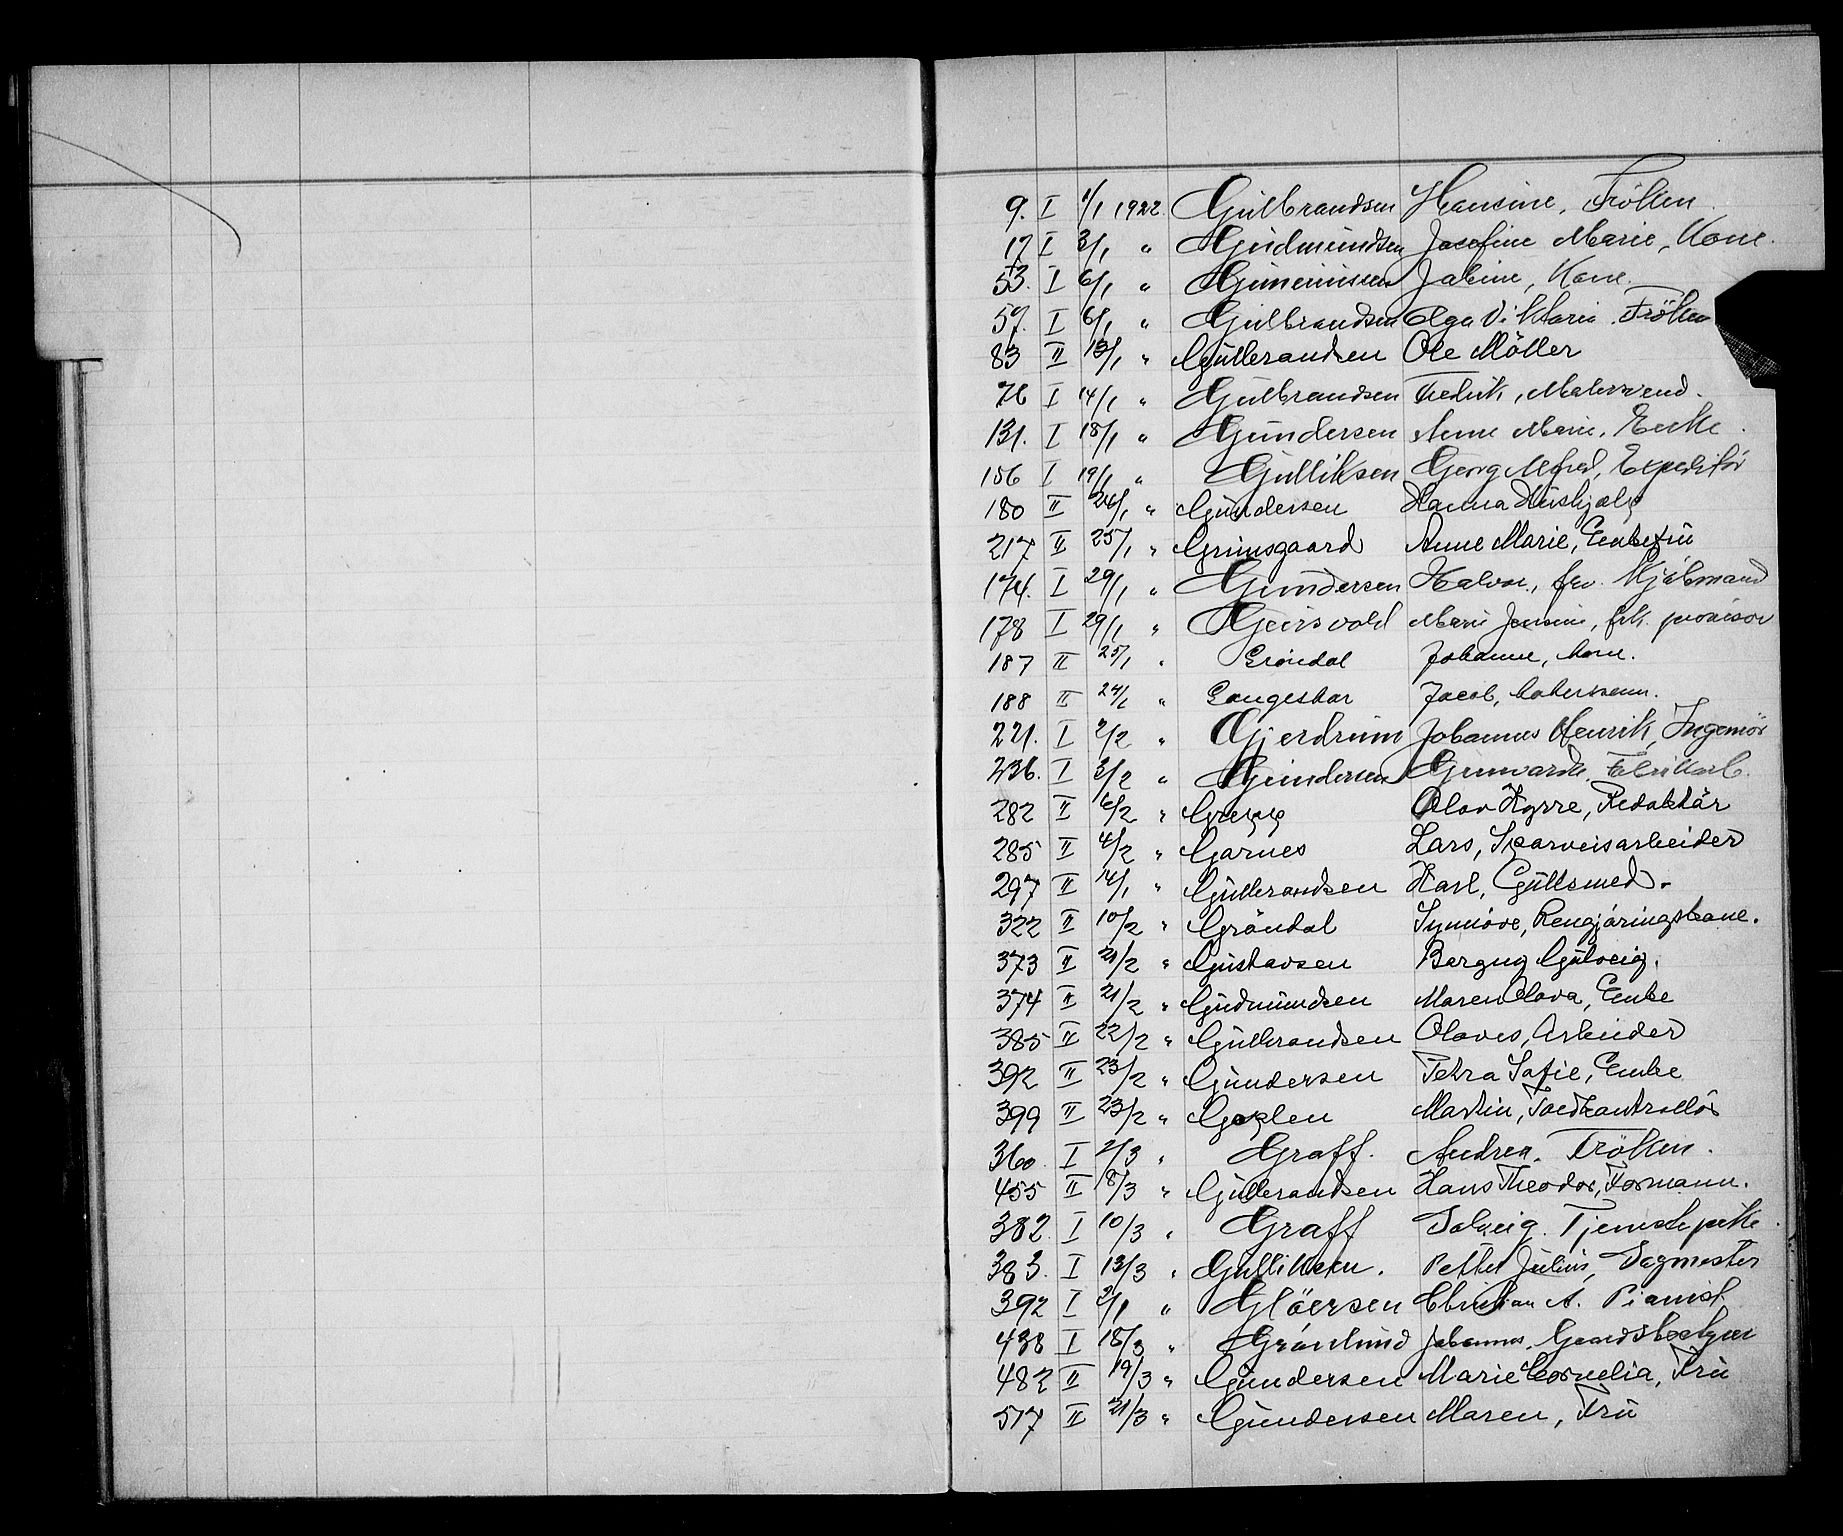 9. I 1/1 1922. Gulbrandsen Hansine, Fröken.
17 I 3/1 " Gudmundsen Josefine Marie, Kone.
53. I 6/1 " Jakine, Kone.
57. I 6/1 " Gulbrandsen Olga Viktoria. Fröken
83 II 13/1 " Gulbrandsen Ole Möller
76 I 14/1 " Gulbrandsen Fredrik, Malersvend.
131. I 18/1 " Gundersen Anne Marie, Enke.
156 I 19/1 " Gulliksen Georg Alfred, Expeditör
180 II 26/1 " Gundersen Hanna Hushjælp
217 II 25/1 " Grimsgaard Anne Marie, Enkefru
174. I 29/1 " Gundersen Halvor, fv. Kjöbmand
178 I 29/1 " Geirsvold Marie Jensine, frk. provisor
187 II 25/1 " Gröndal Johanne, kone.
188 II 24/1 " Gangeskar Jacob,
221. I 2/2 " Gjerdrum Johannes Henrik, Ingeniör
236. I 3/2 " Gundersen Gunvarda. Fabrikarb.
282 II 6/2 " Grepp Olav Kyrre, Redaktör
285 II 4/2 " Garnes Lars, Sporveisarbeider
297 II 14/1 " Gulbrandsen Karl, Gullsmed.
322 II 10/2 " Gröndal Synnöve, Rengjöringskone.
373 II 21/2 " Gustavsen Borgny Gulveig.
374 II 21/2 " Gudmundsen Maren Olava, Enke
385 II 22/2 " Gulbrandsen Olaves, Arbeider
392 II 23/2 " Gundersen Petra Sofie, Enke
399 II 23/2 " Goplen Martin, Toldkontrollör
360. I 2/3 " Graff. Andrea. Fröken.
455 II 8/3 " Gulbrandsen Hans Theodor, Formann.
382. I 10/3 " Graff Solveig. Tjenestepike.
383. I 13/3 " Gulliksen. Petter Julius, Sagmester
392 I 2/1 " Glöersen Christian A. Pianist
438 I 18/3 " Grönlund Johannes. Gaardsbestyrer
482 II 19/3 " Gundersen Marie Cornelia, Fru
517 II 21/3 " Gundersen Maren, Fru